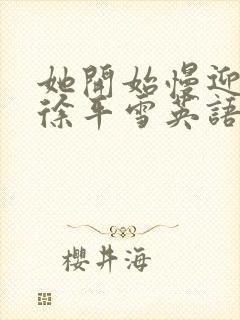 她開始慢迎
徐平雪英語
櫻井海